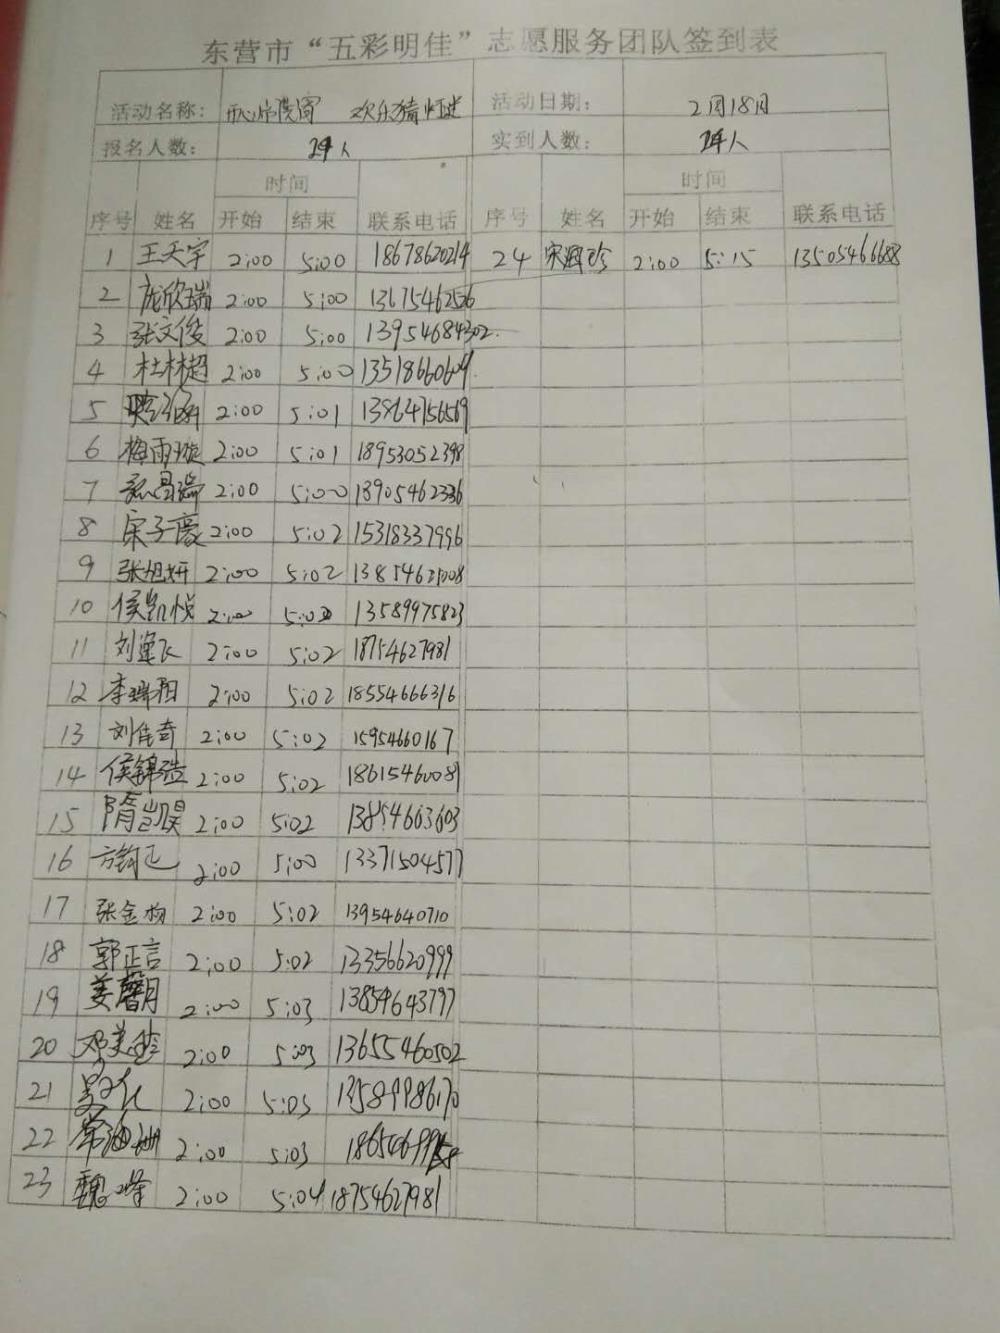 东营市“五彩明佳”志愿服务团队签到表
活动名称： 欢乐猜灯谜 活动日期： 2月18日
报名人数： 24人 实到人数： 24人
时间 时间
序号 姓名 开始 结束 联系电话 序号 姓名 开始 结束 联系电话
1 王天宇 2:00 5:00 18678620214 24 宋海珍 2:00 5:15 13505466688
2 庞欣瑞 2:00 5:00 13675462526
3 张文俊 2:00 5:00 13954684302
4 杜林超 2:00 5:00 13518660609
5 2:00 5:01 13864756569
6 梅雨璇 2:00 5:01 18953052398
7 2:00 5:00 13905462336
8 宋子豪 2:00 5:02 15318337996
9 张旭妍 2:00 5:02
10 侯凯悦 2:00 5:02 13589975823
11 刘逢飞 2:00 5:02 18754627981
12 李瑞阳 2:00 5:02 18554666316
13 刘佳奇 2:00 5:02 15954660167
14 侯锦浩 2:00 5:02 18615460081
15 隋凯昊 2:00 5:02 13854663603
16 方钧正 2:00 5:00 13371504577
17 张金梅 2:00 5:02 13954640710
18 郭正言 2:00 5:02 13356620999
19 姜馨月 2:00 5:03 13854643797
20 邓美玲 2:00 5:03 13655460502
21 2:00 5:03 13589986170
22 2:00 5:03
23 魏峰 2:00 5:04 18754627981